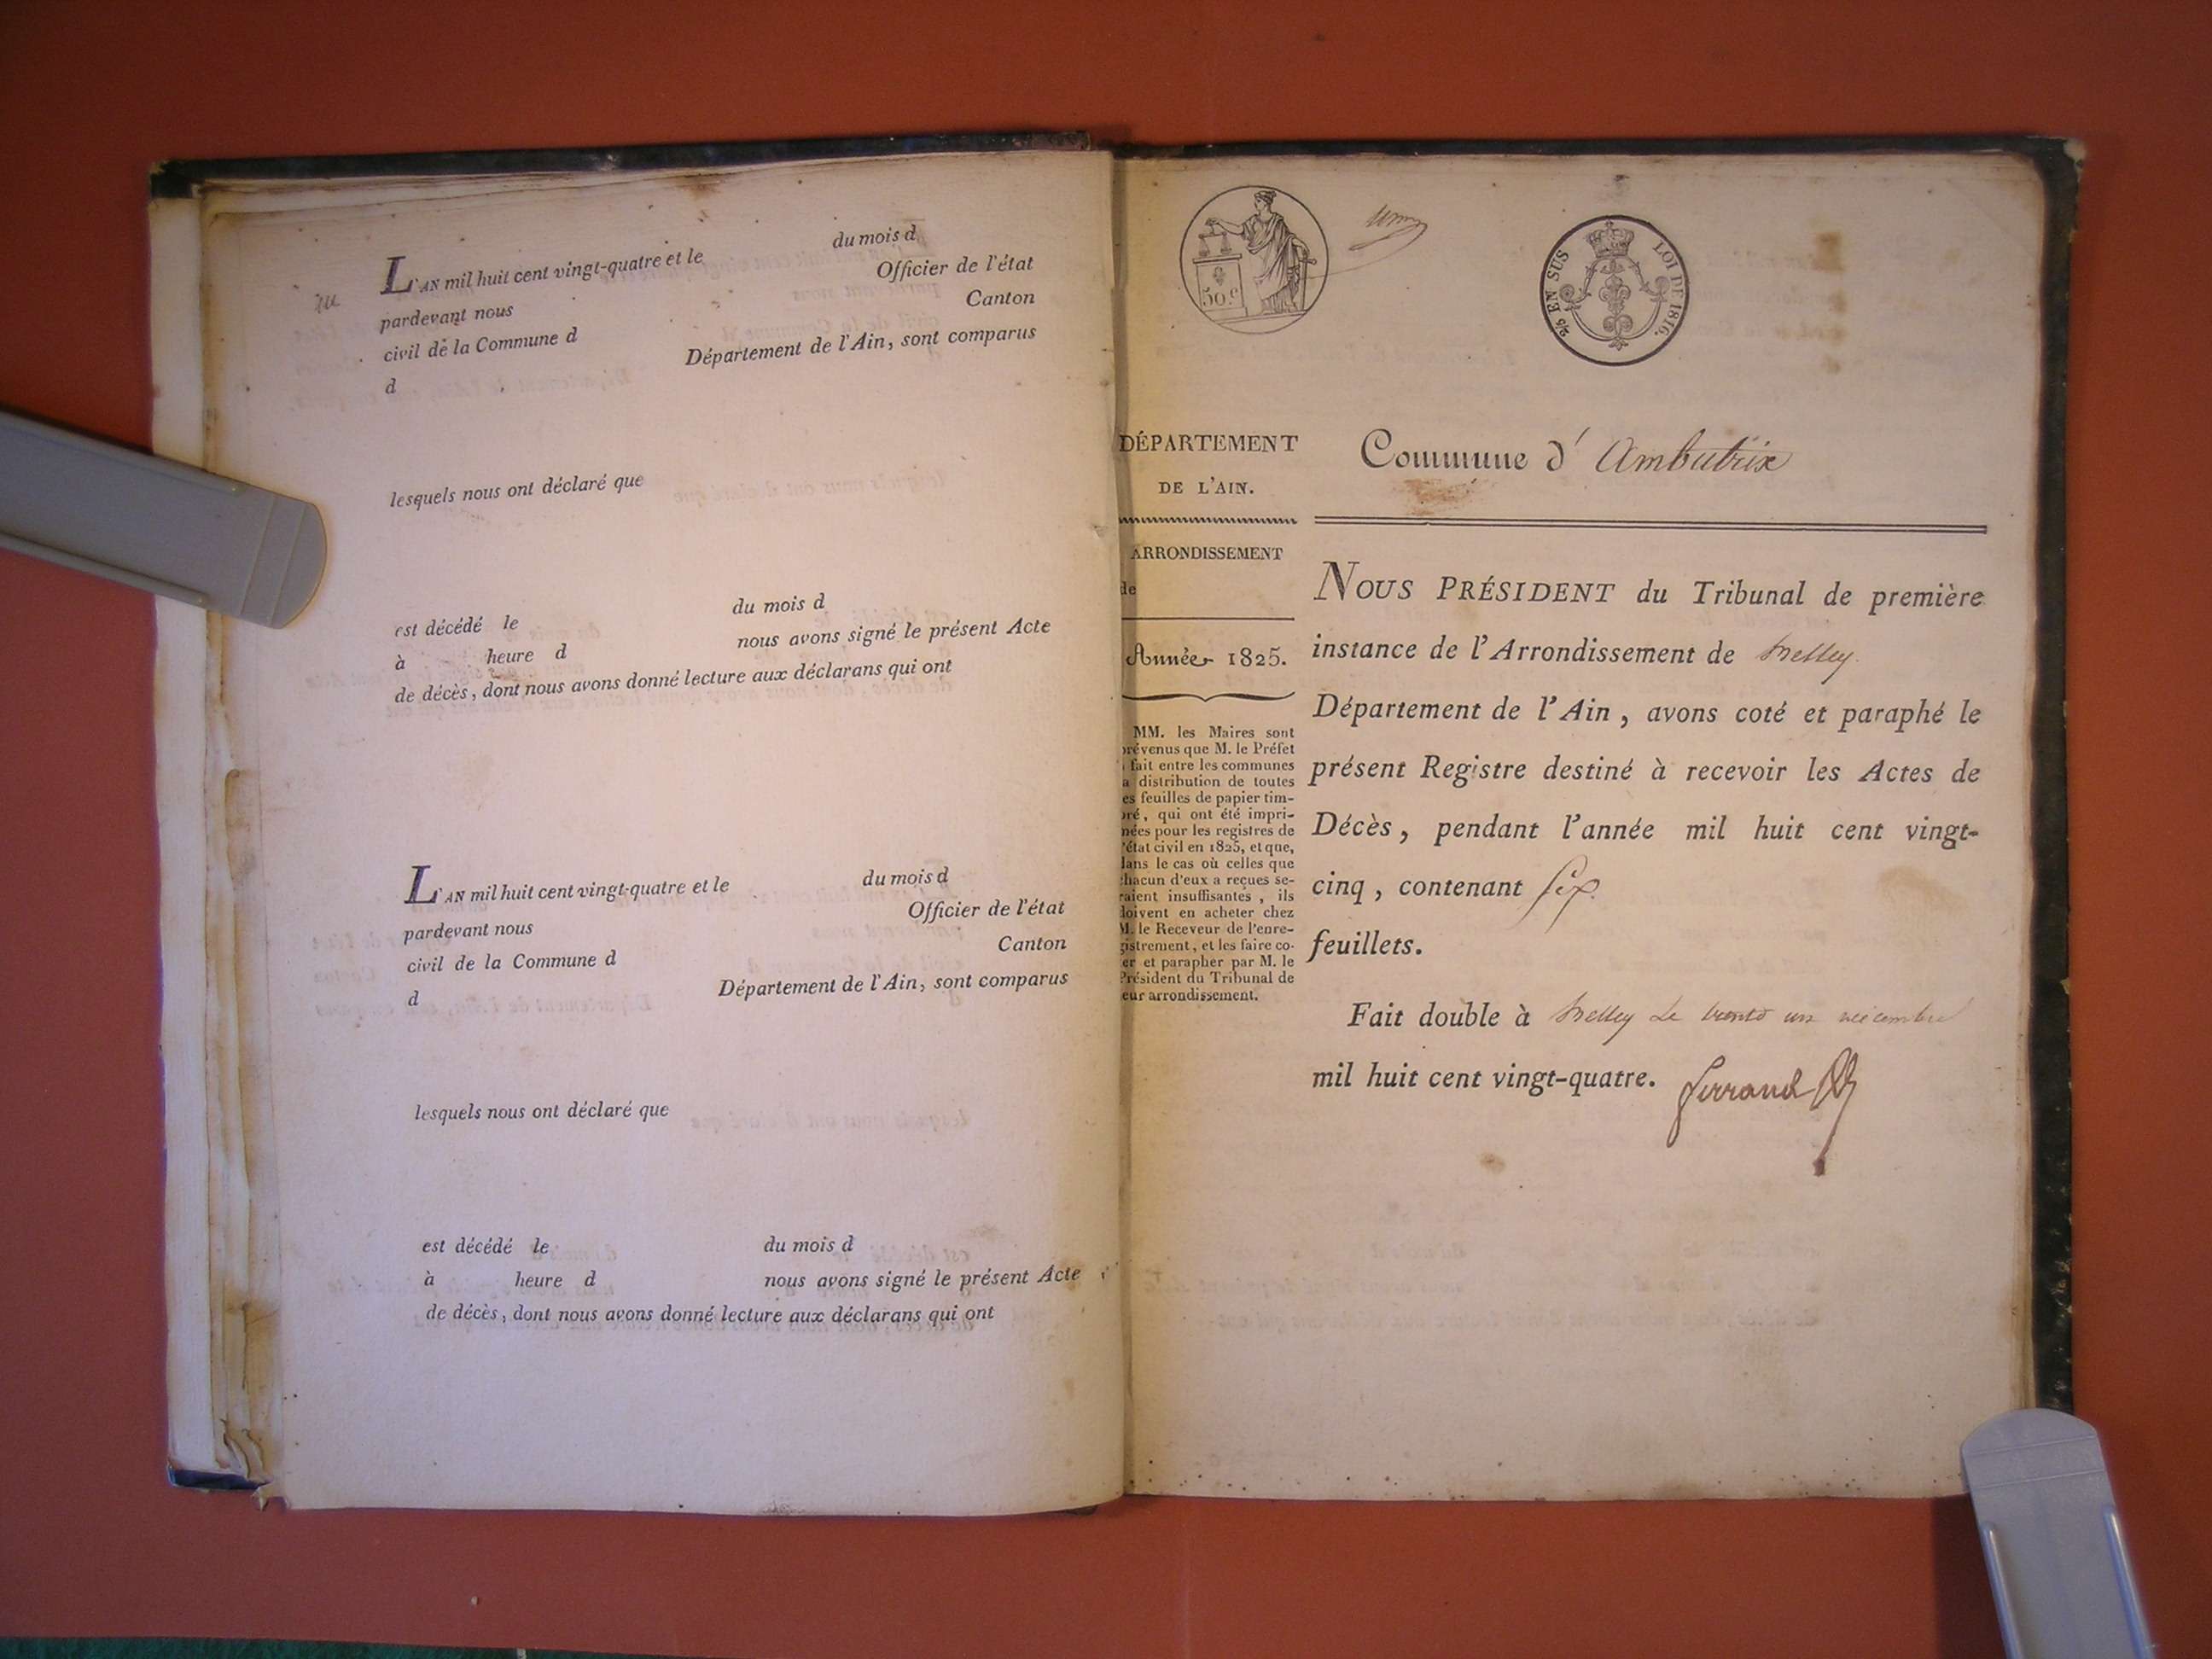 L'AN mil huit cent vingt-quatre et le du mois d
pardevant nous Officier de l'état
civil de la Commune d Canton
d Département de l'Ain, sont comparus
lesquels nous ont déclaré que
est décédé le du mois d
à heure d nous avons signé le présent Acte
de décès, dont nous avons donné lecture aux déclarans qui ont
L'AN mil huit cent vingt-quatre et le du mois d
pardevant nous Officier de l'état
civil de la Commune d Canton
d Département de l'Ain, sont comparus
lesquels nous ont déclaré que
est décédé le du mois d
à heure d nous avons signé le présent Acte
de décès, dont nous avons donné lecture aux déclarans qui ont
50 c
EN SUS
LOI DE 1816.
DÉPARTEMENT
DE L'AIN.
ARRONDISSEMENT
de
Année 1825.
MM. les Maires sont
prévenus que M. le Préfet
fait entre les communes
a distribution de toutes
es feuilles de papier tim-
bré, qui ont été impri-
mées pour les registres de
l'état civil en 1825, et que,
dans le cas où celles que
chacun d'eux a reçues se-
raient insuffisantes, ils
doivent en acheter chez
M. le Receveur de l'enre-
gistrement, et les faire co-
er et parapher par M. le
Président du Tribunal de
eur arrondissement.
Commune d' Ambutrix
NOUS PRÉSIDENT du Tribunal de première
instance de l'Arrondissement de Belley
Département de l'Ain, avons coté et paraphé le
présent Registre destiné à recevoir les Actes de
Décès, pendant l'année mil huit cent vingt-
cinq, contenant six
feuillets.
Fait double à Belley Le trente un décembre
mil huit cent vingt-quatre. ferrand